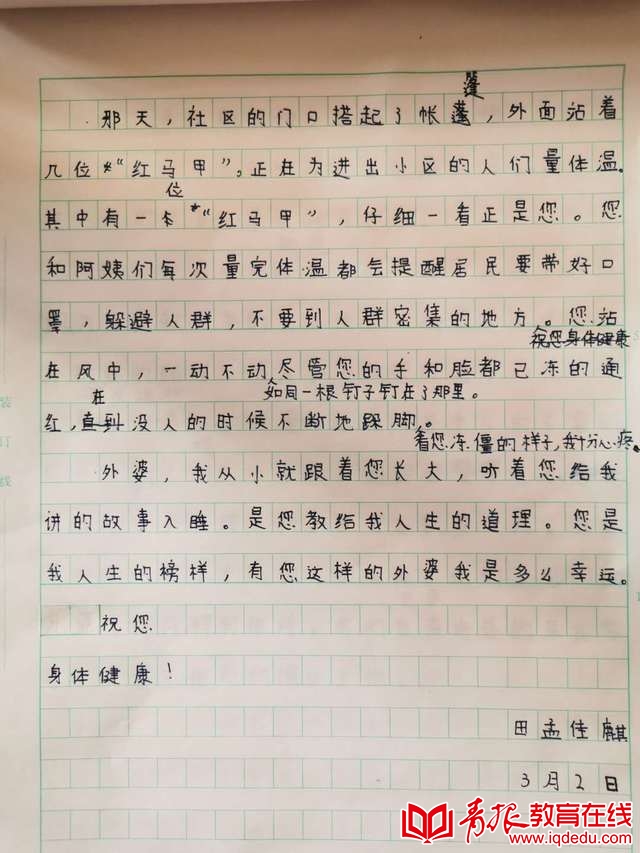 篷
那天，社区的门口搭起了帐蓬，外面站着
几位“红马甲”。正在为进出小区的人们量体温。
位
其中有一卡“红马甲”，仔细一看正是您。您
和阿姨们每次量完体温都会提醒居民要带好口
罩，躲避人群，不要到人群密集的地方。您站
祝您身体健康
在风中，一动不动尽管您的手和脸都已冻的通
在 如同一根钉子钉在了那里。
红，直到没人的时候不断地跺脚。
看您冻僵的样子，我十分心疼。
外婆，我从小就跟着您长大，听着您给我
讲的故事入睡。是您教给我人生的道理。您是
我人生的榜样，有您这样的外婆我是多么幸运。
祝您
身体健康！
田孟佳麒
3月2日
青报教育在线
www.iqdedu.com